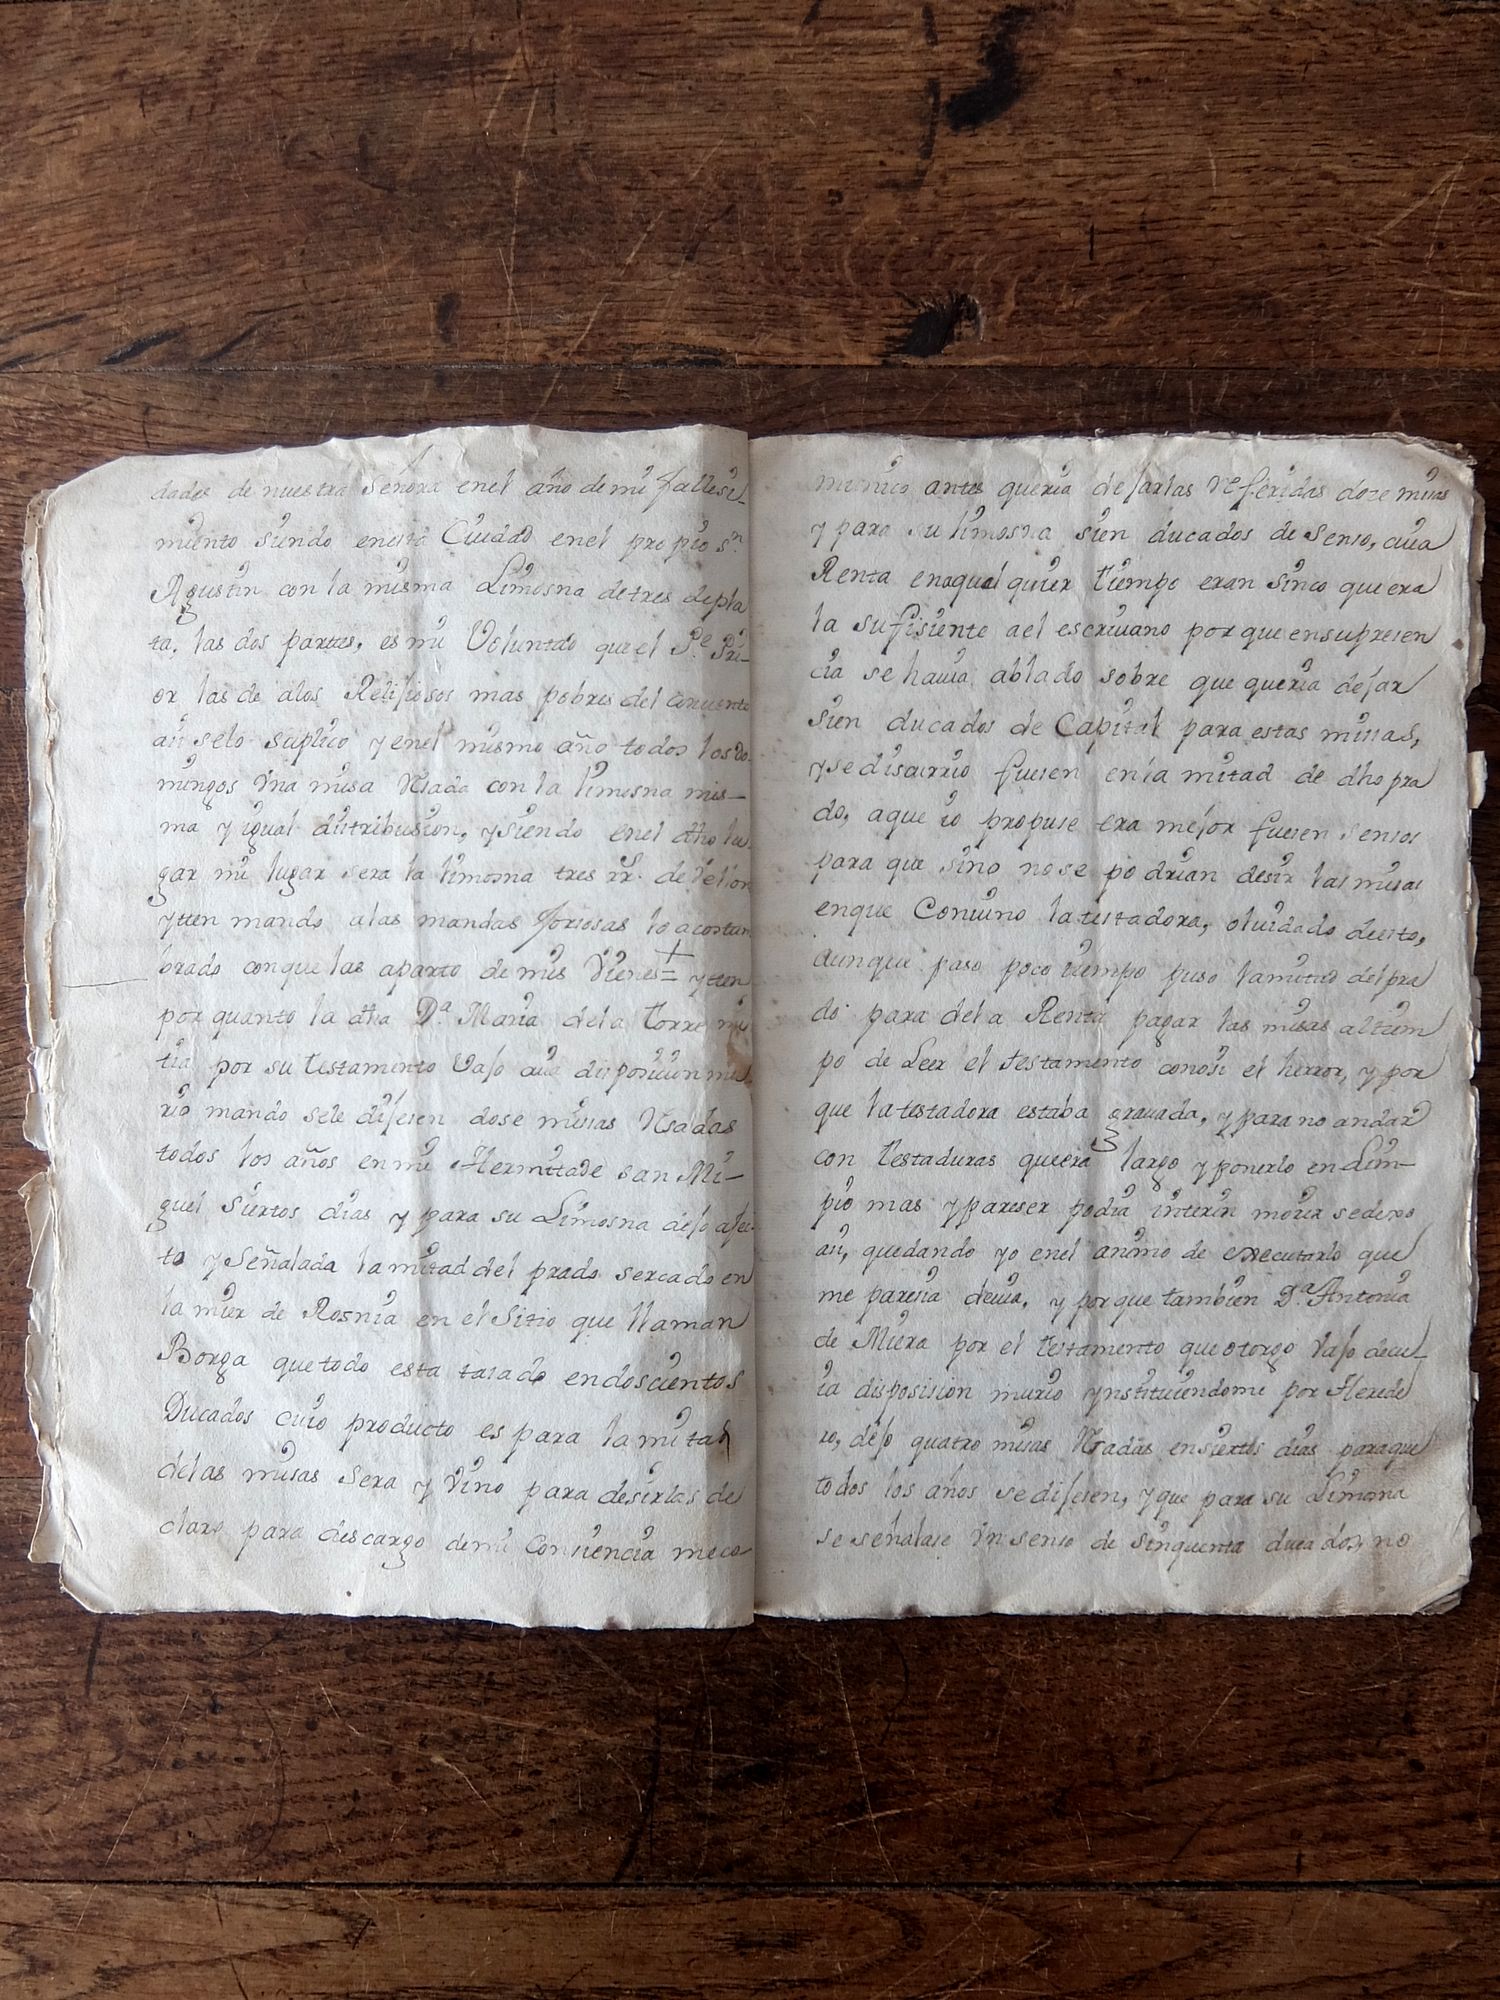 dades de nuestra Señora enel año de mi fallesi-
miento siendo enesta Ciudad enel propio Sn.
Agustin con la misma Limosna detres depla
ta, las dos partes, es mi Voluntad que el Pe. Pri-
or las de alos Relijiosos mas pobres del convento
asi selo suplico y enel mismo año todos los do-
mingos Vna misa Resada con la limosna mis-
ma y igual distribusion, y siendo enel dho lu-
gar mi lugar sera la limosna tres rr. de Vellon
ytten mando alas mandas forsosas lo acostum
brado conque las aparto de mis Vienes = ytten
por quanto la dha Da. Maria dela Torre mi
tia por su testamento Vajo cuia disposicion mu
rio mando sele dijesen dose misas Resadas
todos los años en mi Hermitade san Mi-
guel siertos dias y para su Limosna dejo afec-
to y señalada la mitad del prado sercado en
la mier de Rosnia en el Sitio que llaman
Borga que todo esta tasado endoscientos
Ducados cuio producto es para la mitad
delas misas sera y Vino para desirlas de
claro para descargo demi Consiencia meco-
munico antes queria dejarlas referidas doze misas
y para su limosna sien ducados de senso, cuia
Renta enaqualquier tiempo eran sinco que era
la sufisiente ael escrivano por que ensupresen
cia se havia ablado sobre que queria dejar
sien ducados de Capital para estas misas,
y se discurrio fuesen enla mitad de dho pra
do, aque io propuse era mejor fuesen sensos
para que sino nose podrian desir las misas
enque Convino latestadora, olvidado deesto,
aunque paso poco tiempo puso lamitad del pra
do para dela Renta pagar las misas altiem
po de Leer el testamento conosi el herror, y por
que latestadora estaba gravada, y para no andar
con testaduras queera largo y ponerlo en Lim-
pio mas y pareser podia interin morir sedexo
asi, quedando yo enel animo de executarlo que
me paresia devia, y por que tambien Da. Antonia
de Miera por el testamento que otorgo Vajo decu-
ia disposision murio ynstituiendome por Herede
ro, dejo quatro misas Resadas ensiertos dias paraque
todos los años se dijesen, y que para su Limosna
se señalase Vn senso de sinquenta ducados, no